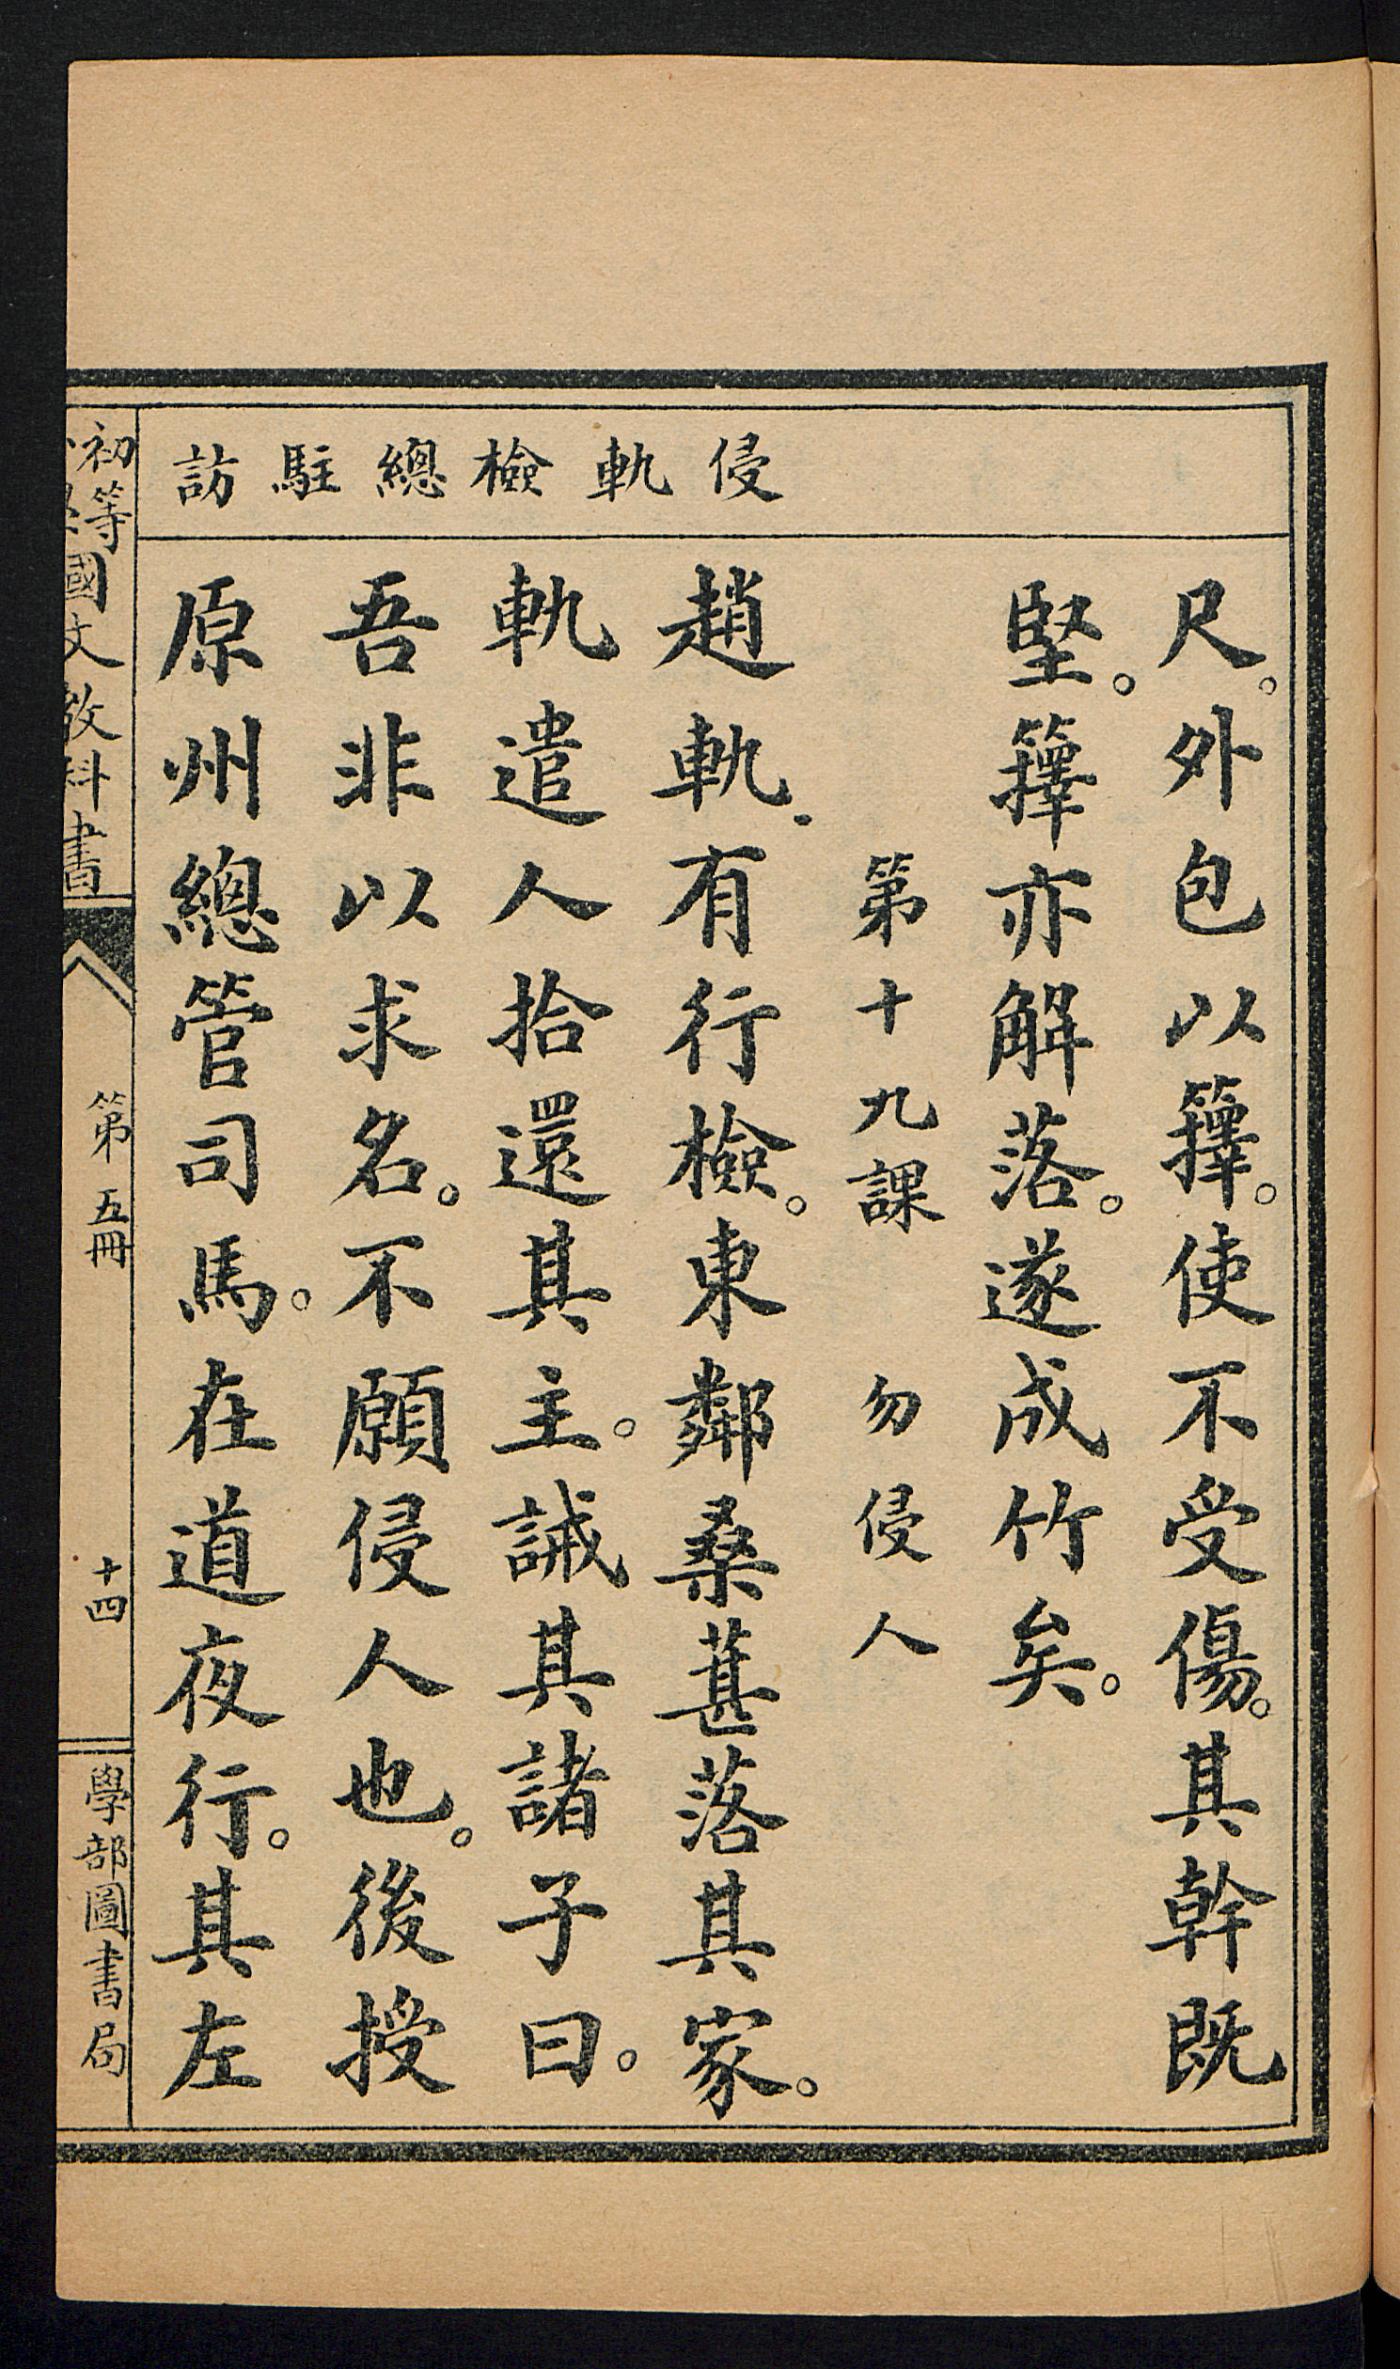 侵軌檢總駐訪
尺。外包以籜。使不受傷。其幹既
堅。籜亦解落。遂成竹矣。
第十九課 勿侵人
趙軌.有行檢。東鄰桑葚落其家。
軌遣人拾還其主。誡其諸子曰。
吾非以求名。不願侵人也。後授
原州總管司馬。在道夜行。其左
初等
國文教科書
第五冊
十四
學部圖書局